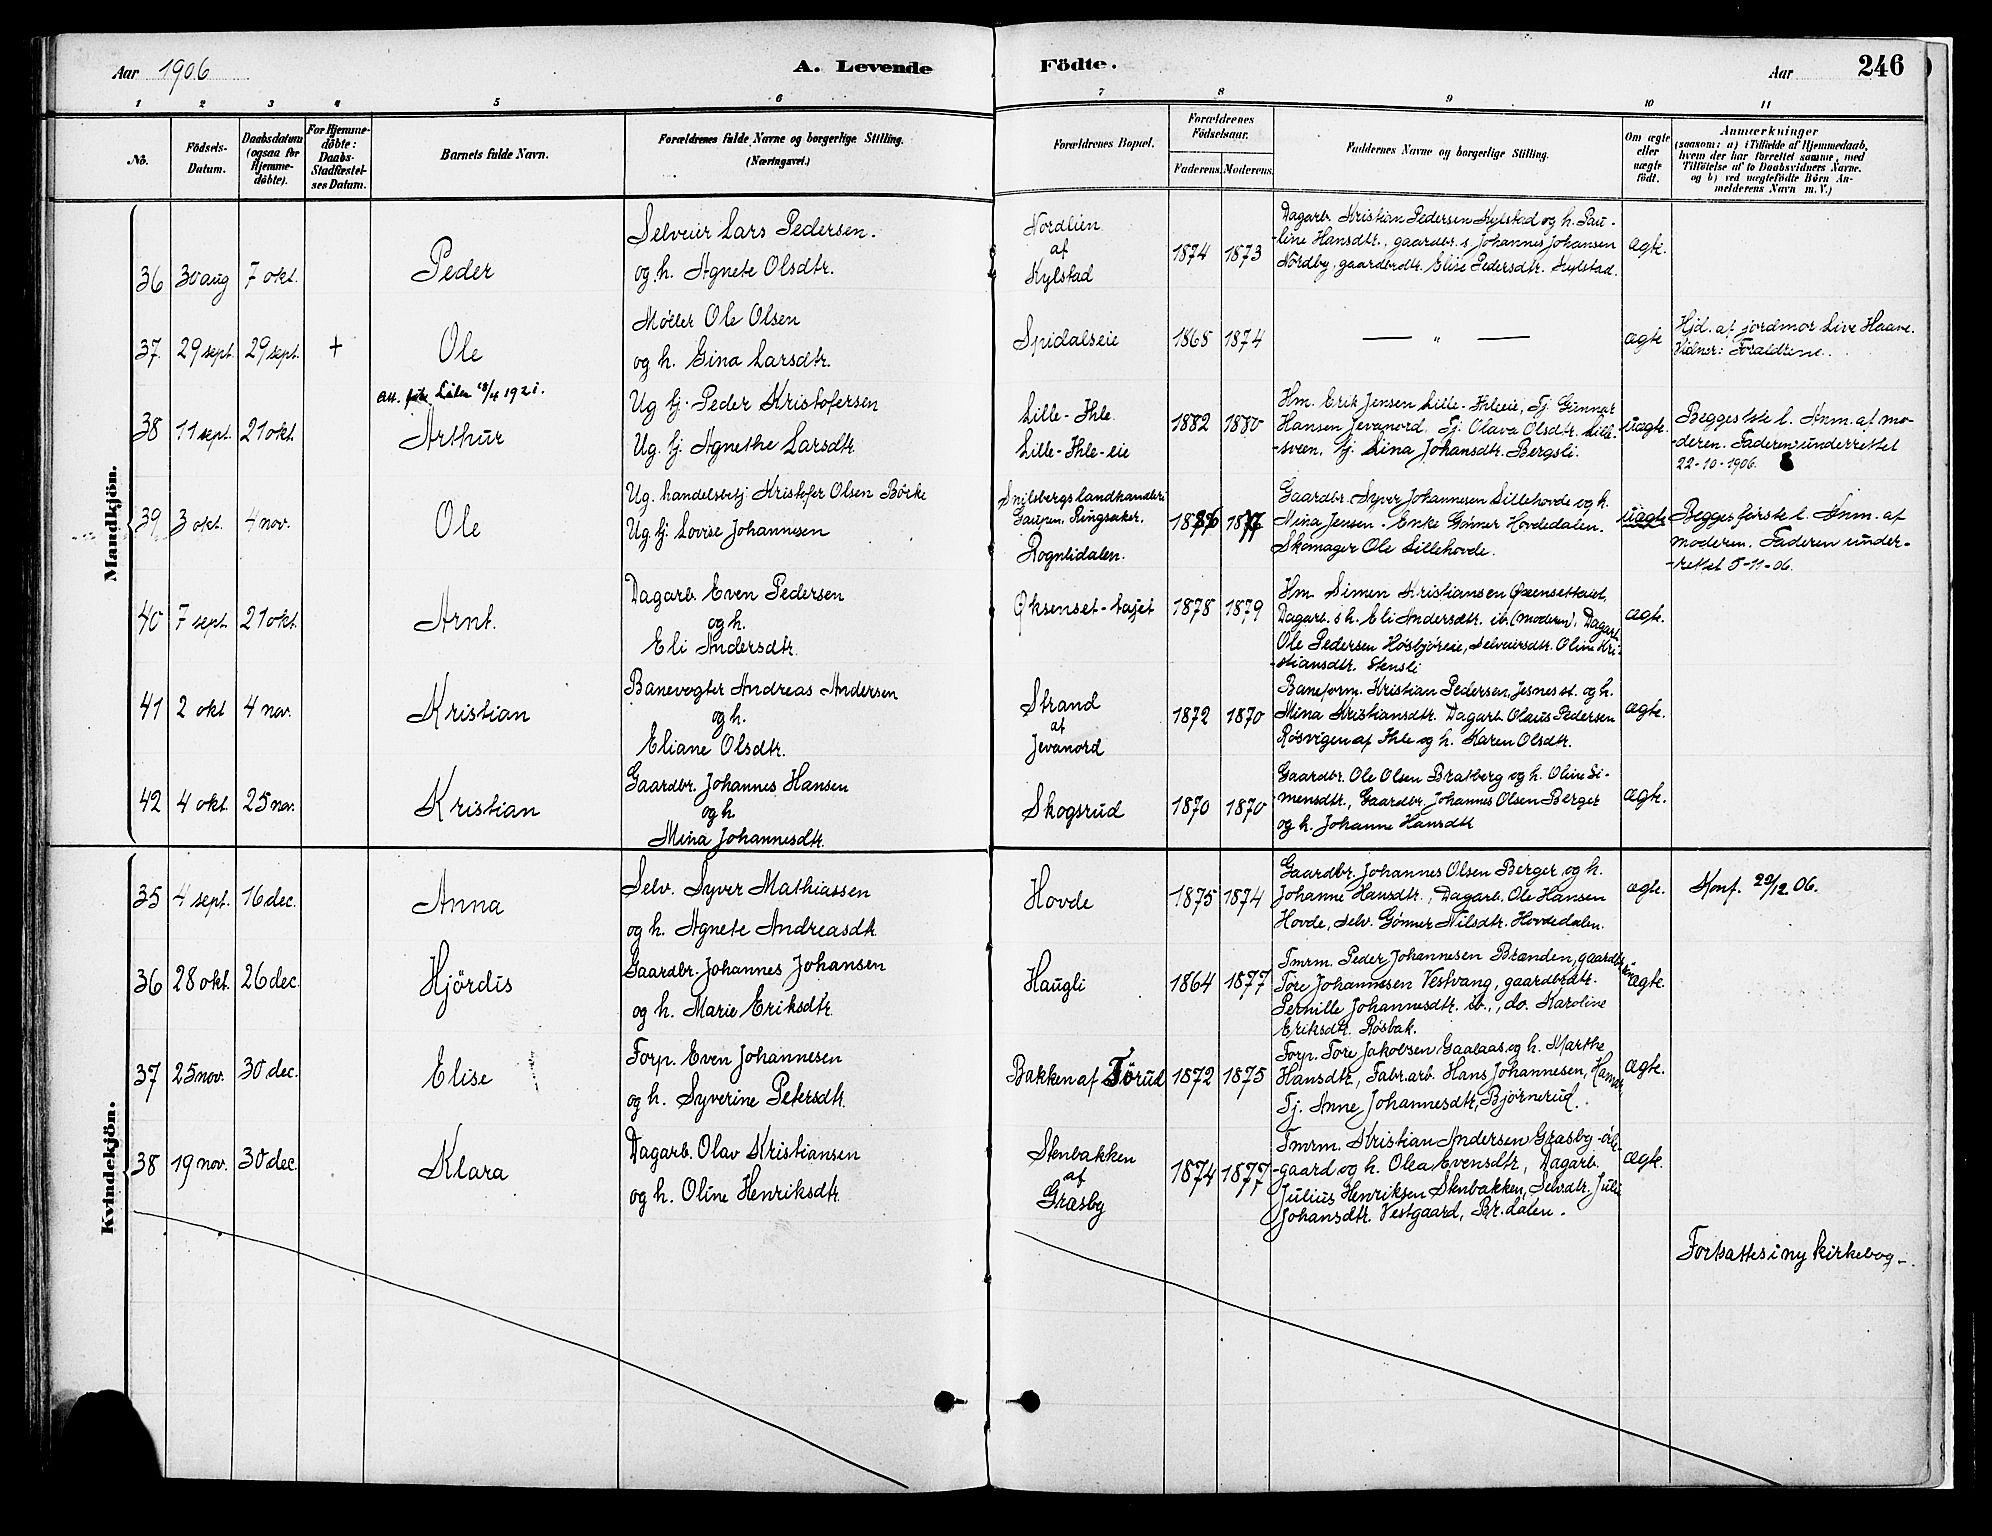 Aar 1906
A. Levende
Födte.
Aar
246
1 2 3 4 5 6 7 8 9 10 11
No.
Födsels-
Datum.
Daabsdatum
(ogsaa for
Hjemme-
döbte).
For Hjemme-
döbte:
Daabs-
Stadfæstel-
ses Datum.
Barnets fulde Navn.
Forældrenes fulde Navne og borgerlige Stilling.
(Næringsvei.)
Forældrenes Bopæl.
Forældrenes
Födselsaar.
Faderens. Moderens.
Faddernes Navne og borgerlige Stilling.
Om ægte
eller
uægte
födt.
Anmærkninger
(saasom: a) i Tilfælde af Hjemmedaab,
hvem der har forrettet samme, med
Tilföielse af to Daabsvidners Navne.
og b) ved uægtefödte Börn An-
melderens Navn m. V.)
Mandkjön.
36 30 aug 7 okt. Peder
Selveier Lars Pedersen.
og h. Agnete Olsdtr.
Nordlien
af
Kylstad
1874 1873
Dagarb. Kristian Pedersen Kylstad og h. Pau-
-line Hansdtr., gaardbr. s. Johannes Johansen
Nordby, gaardbrdtr. Elise Pedersdtr. Kylstad.
ægte.
37 29 sept. 29 sept. + Ole
Møller Ole Olsen
og h. Gina Larsdtr.
Spidalseie
1865 1874
— " —
ægte
Hjd. af jordmor Live Haave.
Vidner: Forældrene.
Att. 18/4 1921.
38 11 sept. 21 okt. Arthur
Ug. tj. Peder Kristofersen
Ug. tj. Agnethe Larsdtr.
Lille-Ihle
Lille-Ihle-eie
1882 1880
Hm. Erik Jensen Lille-Ihleeie, Tj. Gunnar
Hansen Jevanord, Tj. Olava Olsdtr. Lille-
-sveen, tj. Lina Johansdtr. Bergsli.
uægte.
Begges 1ste l. Anm. af mo-
-deren. Faderen underrettet
22-10-1906.
39 3 okt. 4 nov. Ole
Ug. handelsbetj. Kristofer Olsen Börke
Ug. tj. Lovise Johannesen
Snilsbergs landhandleri
Gaupen, Ringsaker.
Rognlidalen.
1886 1877
Gaardbr. Syver Johannesen Lillehovde og h.
Mina Jensen. Enke Gönner Hovdedalen.
Skomager Ole Lillehovde.
uægte
Begges første l. Anm. af
moderen. Faderen under-
-rettet 5-11-06.
40 7 sept. 21 okt. Arnt.
Dagarb. Even Pedersen
og h.
Eli Andersdtr.
Øksenset-tajet
1878 1879
Hm. Simen Kristiansen Øxensettajet,
Dagarb. s h. Eli Andersdtr. ib. (moderen). Dagarb.
Ole Pedersen Høsbjöreie, Selveiersdtr. Oline Kri-
-stiansdtr. Stensli
ægte.
41 2 okt 4 nov. Kristian
Banevogter Andreas Andersen
og h.
Eliane Olsdtr.
Strand
af
Jevanord
1872 1870
Baneform. Kristian Pedersen, Jesnes st. og h.
Mina Kristiansdtr. Dagarb. Olaus Pedersen
Røsvigen af Ihle og h. Karen Olsdtr.
ægte.
42 4 okt. 25 nov. Kristian
Gaardbr. Johannes Hansen
og h.
Mina Johannesdtr.
Skogsrud
1870 1870
Gaardbr. Ole Olsen Bratberg og h. Oline Si-
-mensdtr., Gaardbr. Johannes Olsen Berger
og h. Johanne Hansdtr
ægte.
Kvindekjön.
35 4 sept. 16 dec. Anna
Selv. Syver Mathiassen
og h. Agnete Andreasdtr.
Hovde
1875 1874
Gaardbr. Johannes Olsen Berger og h.
Johanne Hansdtr., Dagarb. Ole Hansen
Hovde, selv. Gönner Nilsdtr. Hovdedalen.
ægte.
Konf. 29/12 06.
36 28 okt. 26 dec. Hjördis
Gaardbr. Johannes Johansen
og h. Marie Eriksdtr.
Haugli
1864 1877
Tmrm. Peder Johannesen Brænden, gaardbrsøn
Tore Johannesen Vestvang, gaardbrdtr.
Pernille Johannesdtr. ib., do. Karoline
Eriksdtr. Røsbak.
ægte.
37 25 nov. 30 dec. Elise
Forp. Even Johannesen
og h. Syverine Petersdtr.
Bakken af Törud
1872 1875
Forp. Tore Jakobsen Gaalaas og h. Marthe
Hansdtr., Fabr.arb. Hans Johannesen, Hamar,
Tj. Anne Johannesdtr, Björnerud.
ægte.
38 19 nov. 30 dec. Klara
Dagarb. Olav Kristiansen
og h. Oline Henriksdtr.
Sknbakken
af
Græsby
1874 1877
Tmrm. Kristian Andersen Græsby-öde-
-gaard og h. Olea Evensdtr, Dagarb.
Julius Henriksen Sknbakken, Selvdtr. Julie
Johansdtr. Vestgaard, Br.dalen.
ægte.
Fortsættes i ny kirkebog.